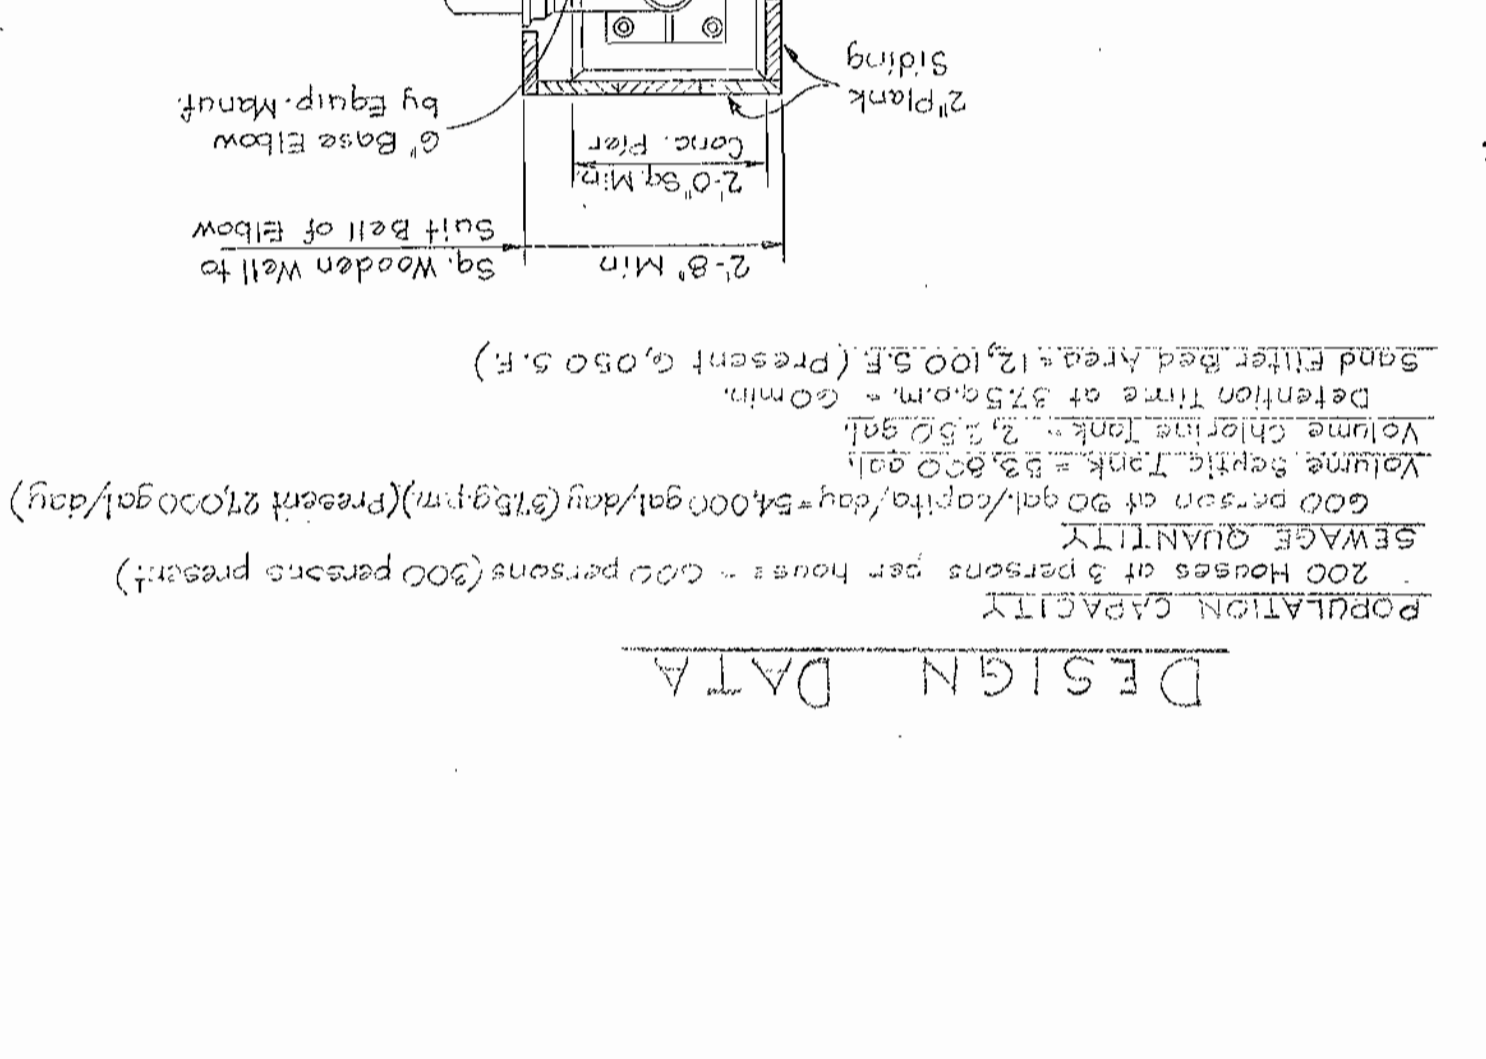 DESIGN DATA
POPULATION CAPACITY
200 Houses at 3 persons per house = 600 persons (300 persons present±)
SEWAGE QUANTITY
600 person at 90 gal./capita/day = 54,000 gal/day (37.5 g.p.m.)(Present 27,000 gal/day)
Volume Septic Tank = 53,800 gal.
Volume Chlorine Tank = 2,250 gal.
Detention Time at 37.5 g.p.m. = 60 min.
Sand Filter Bed Area = 12,100 S.F. (Present 6,050 S.F.)
2'-8" Min
Sq. Wooden Well to
Suit Bell of Elbow
2'-0" Sq. Min.
Conc. Pier
6" Base Elbow
by Equip. Manuf.
2" Plank
Siding